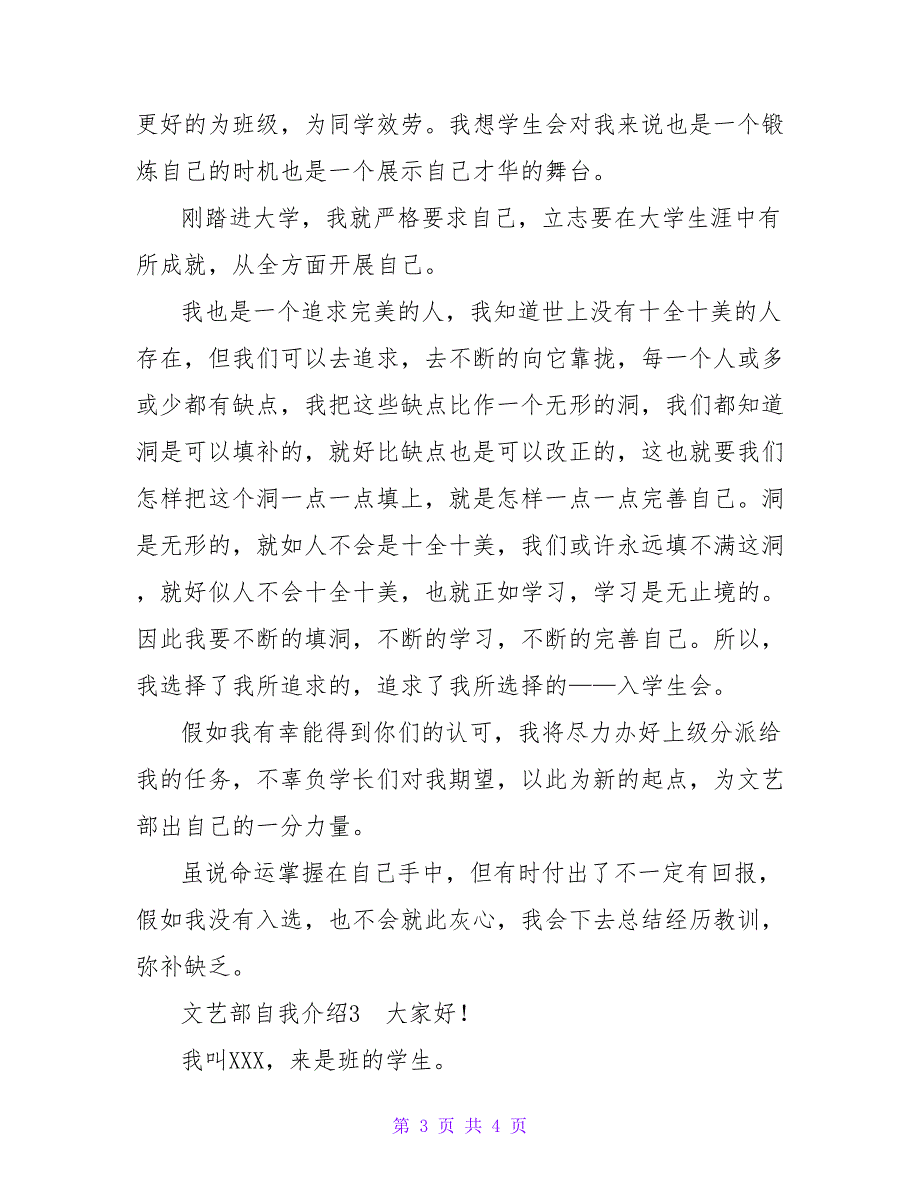 更好的为班级，为同学效劳。我想学生会对我来说也是一个锻
炼自己的时机也是一个展示自己才华的舞台。
刚踏进大学，我就严格要求自己，立志要在大学生涯中有
所成就，从全方面开展自己。
我也是一个追求完美的人，我知道世上没有十全十美的人
存在，但我们可以去追求，去不断的向它靠拢，每一个人或多
或少都有缺点，我把这些缺点比作一个无形的洞，我们都知道
洞是可以填补的，就好比缺点也是可以改正的，这也就要我们
怎样把这个洞一点一点填上，就是怎样一点一点完善自己。洞
是无形的，就如人不会是十全十美，我们或许永远填不满这洞
，就好似人不会十全十美，也就正如学习，学习是无止境的。
因此我要不断的填洞，不断的学习，不断的完善自己。所以，
我选择了我所追求的，追求了我所选择的——入学生会。
假如我有幸能得到你们的认可，我将尽力办好上级分派给
我的任务，不辜负学长们对我期望，以此为新的起点，为文艺
部出自己的一分力量。
虽说命运掌握在自己手中，但有时付出了不一定有回报，
假如我没有入选，也不会就此灰心，我会下去总结经历教训，
弥补缺乏。
文艺部自我介绍3　大家好！
我叫XXX，来是班的学生。
第 3 页 共 4 页